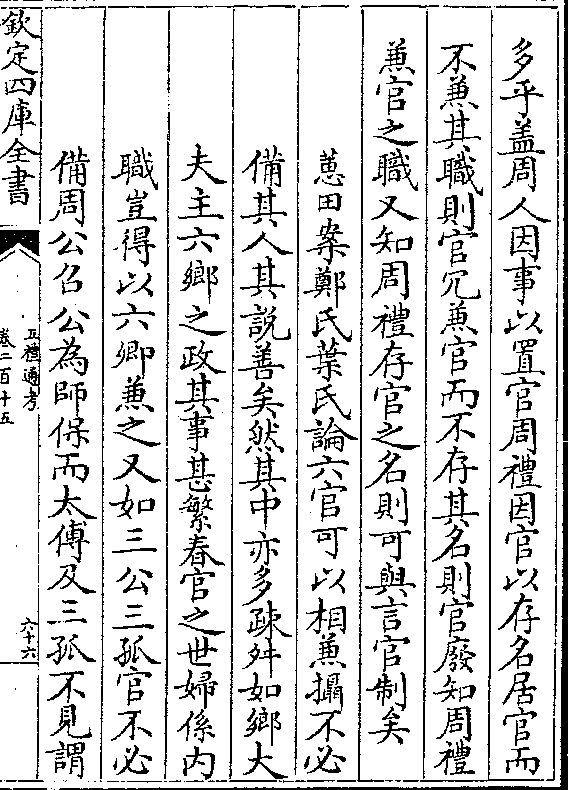 多乎盖周人因事以置官周禮因官以存名居官而
不兼其職則官冗兼官而不存其名則官廢知周禮
兼官之職又知周禮存官之名則可與言官制矣
蕙田案鄭氏葉氏論六官可以相兼攝不必
備其人其說善矣然其中亦多疎舛如鄉大
夫主六鄉之政其事甚繁春官之世婦係内
職豈得以六卿兼之又如三公三孤官不必
備周公召公為師保而太傅及三孤不見謂
欽定四庫全書
五禮通考
卷二百十五
六十六